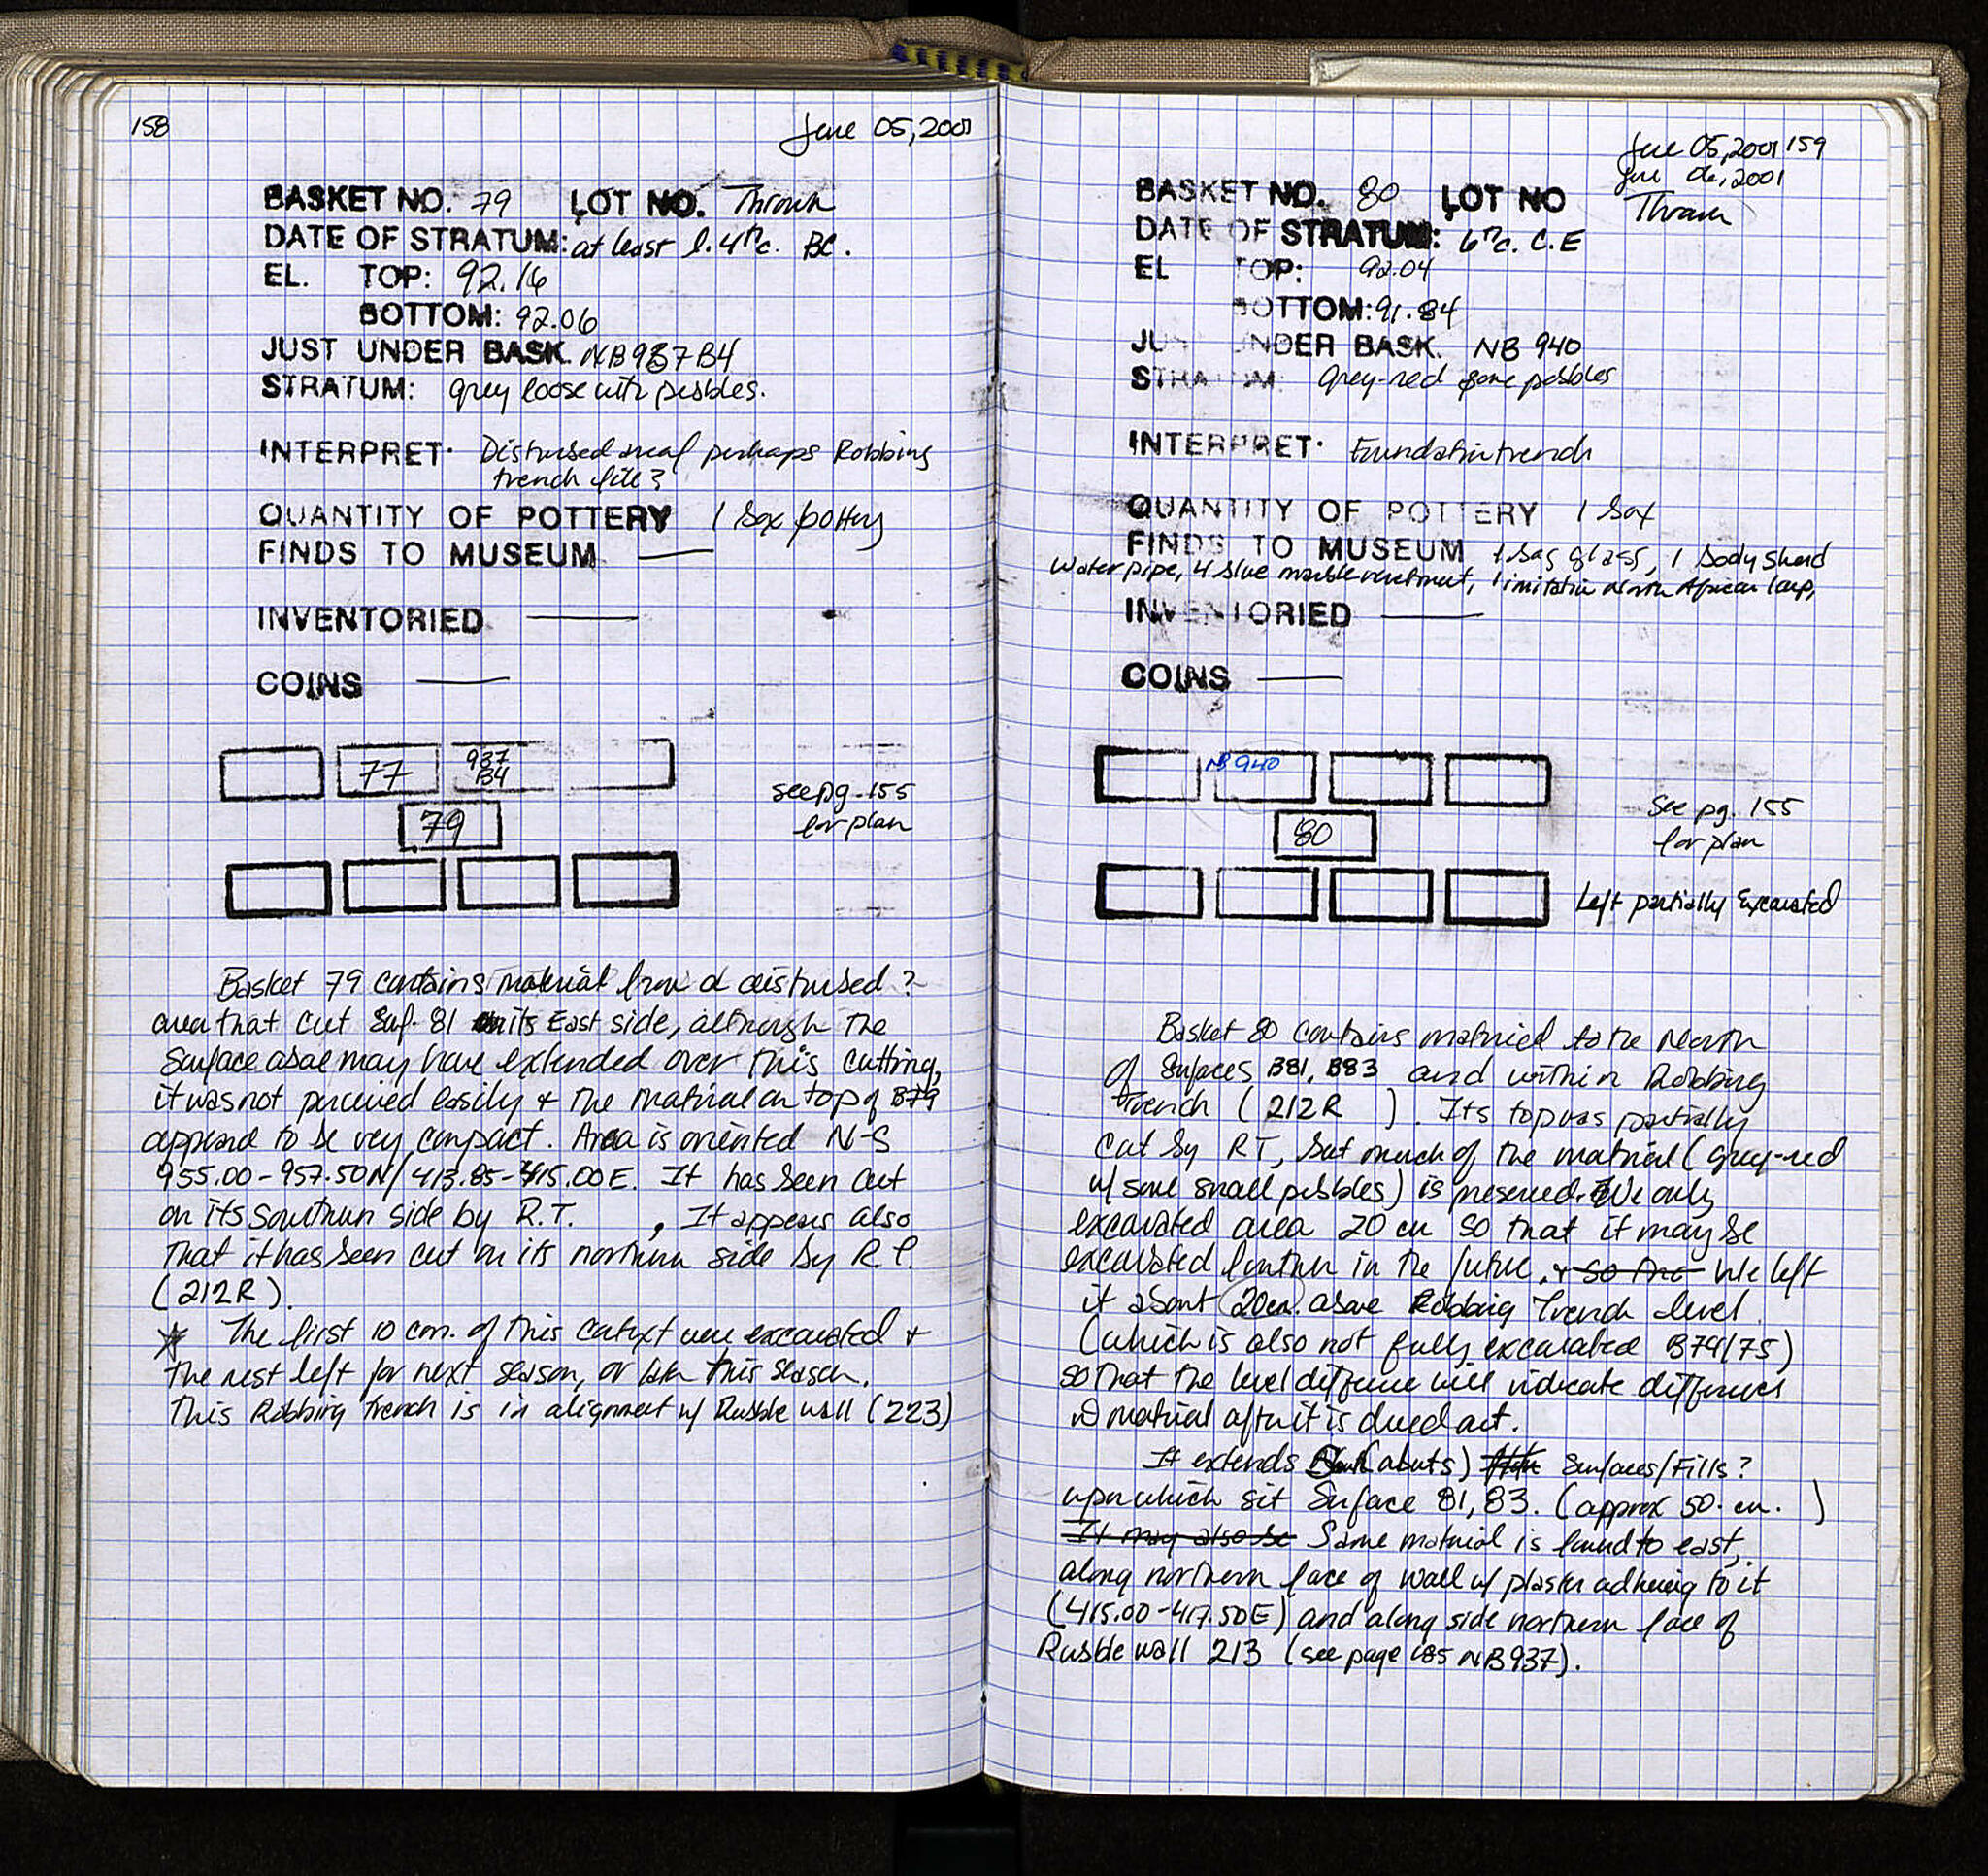 158
June 05, 2001
BASKET NO. 79 LOT NO. Thrown
DATE OF STRATUM: at least l. 4th c. BC.
EL. TOP: 92.16
BOTTOM: 92.06
JUST UNDER BASK. NB937B4
STRATUM: grey loose with pebbles.
INTERPRET. Disturbed area/ perhaps Robbing
trench fill?
QUANTITY OF POTTERY 1 box pottery
FINDS TO MUSEUM
INVENTORIED
COINS
77 937
B4
79
see pg. 155
for plan
Basket 79 contains material from a disturbed?
area that cut Surf. 81 on its East side, although the
surface above may have extended over this cutting,
it was not perceived easily + the material on top of B79
appeared to be very compact. Area is oriented N-S
955.00-957.50N/413.85-415.00E. It has been cut
on its southern side by R.T. , It appears also
that it has been cut on its northern side by R.T.
(212R).
* The first 10 cm. of this context were excavated +
the rest left for next season, or later this season.
This Robbing trench is in alignment w/ Rubble wall (223)
June 05, 2001 159
June 06, 2001
BASKET NO. 80 LOT NO Thrown
DATE OF STRATUM: 6th c. C.E
EL TOP: 92.04
BOTTOM: 91.84
JUST UNDER BASK. NB 940
STRATUM: grey-red some pebbles
INTERPRET. Foundation trench
QUANTITY OF POTTERY 1 box
FINDS TO MUSEUM 1 bag glass, 1 body sherd
water pipe, 4 blue marble revetment, 1 imitation North African lamp,
INVENTORIED
COINS
NB 940
80
See pg. 155
for plan
Left partially Excavated
Basket 80 contains material to the North
of Surfaces B81, B83 and within Robbing
trench (212R ). Its top was partially
cut by RT, but much of the material (grey-red
w/ some small pebbles) is preserved. We only
excavated area 20 cm so that it may be
excavated further in the future. + so that We left
it about 20cm. above Robbing Trench level
(which is also not fully excavated B74/75)
so that the level difference will indicate differences
in material after it is dried out.
It extends South (abuts) Surfaces/Fills?
upon which sit Surface 81, 83. (approx 50. cm. )
It may also be Same material is found to east,
along northern face of wall w/ plaster adhering to it
(415.00-417.50E) and along side northern face of
Rubble wall 213 (see page 185 NB937).